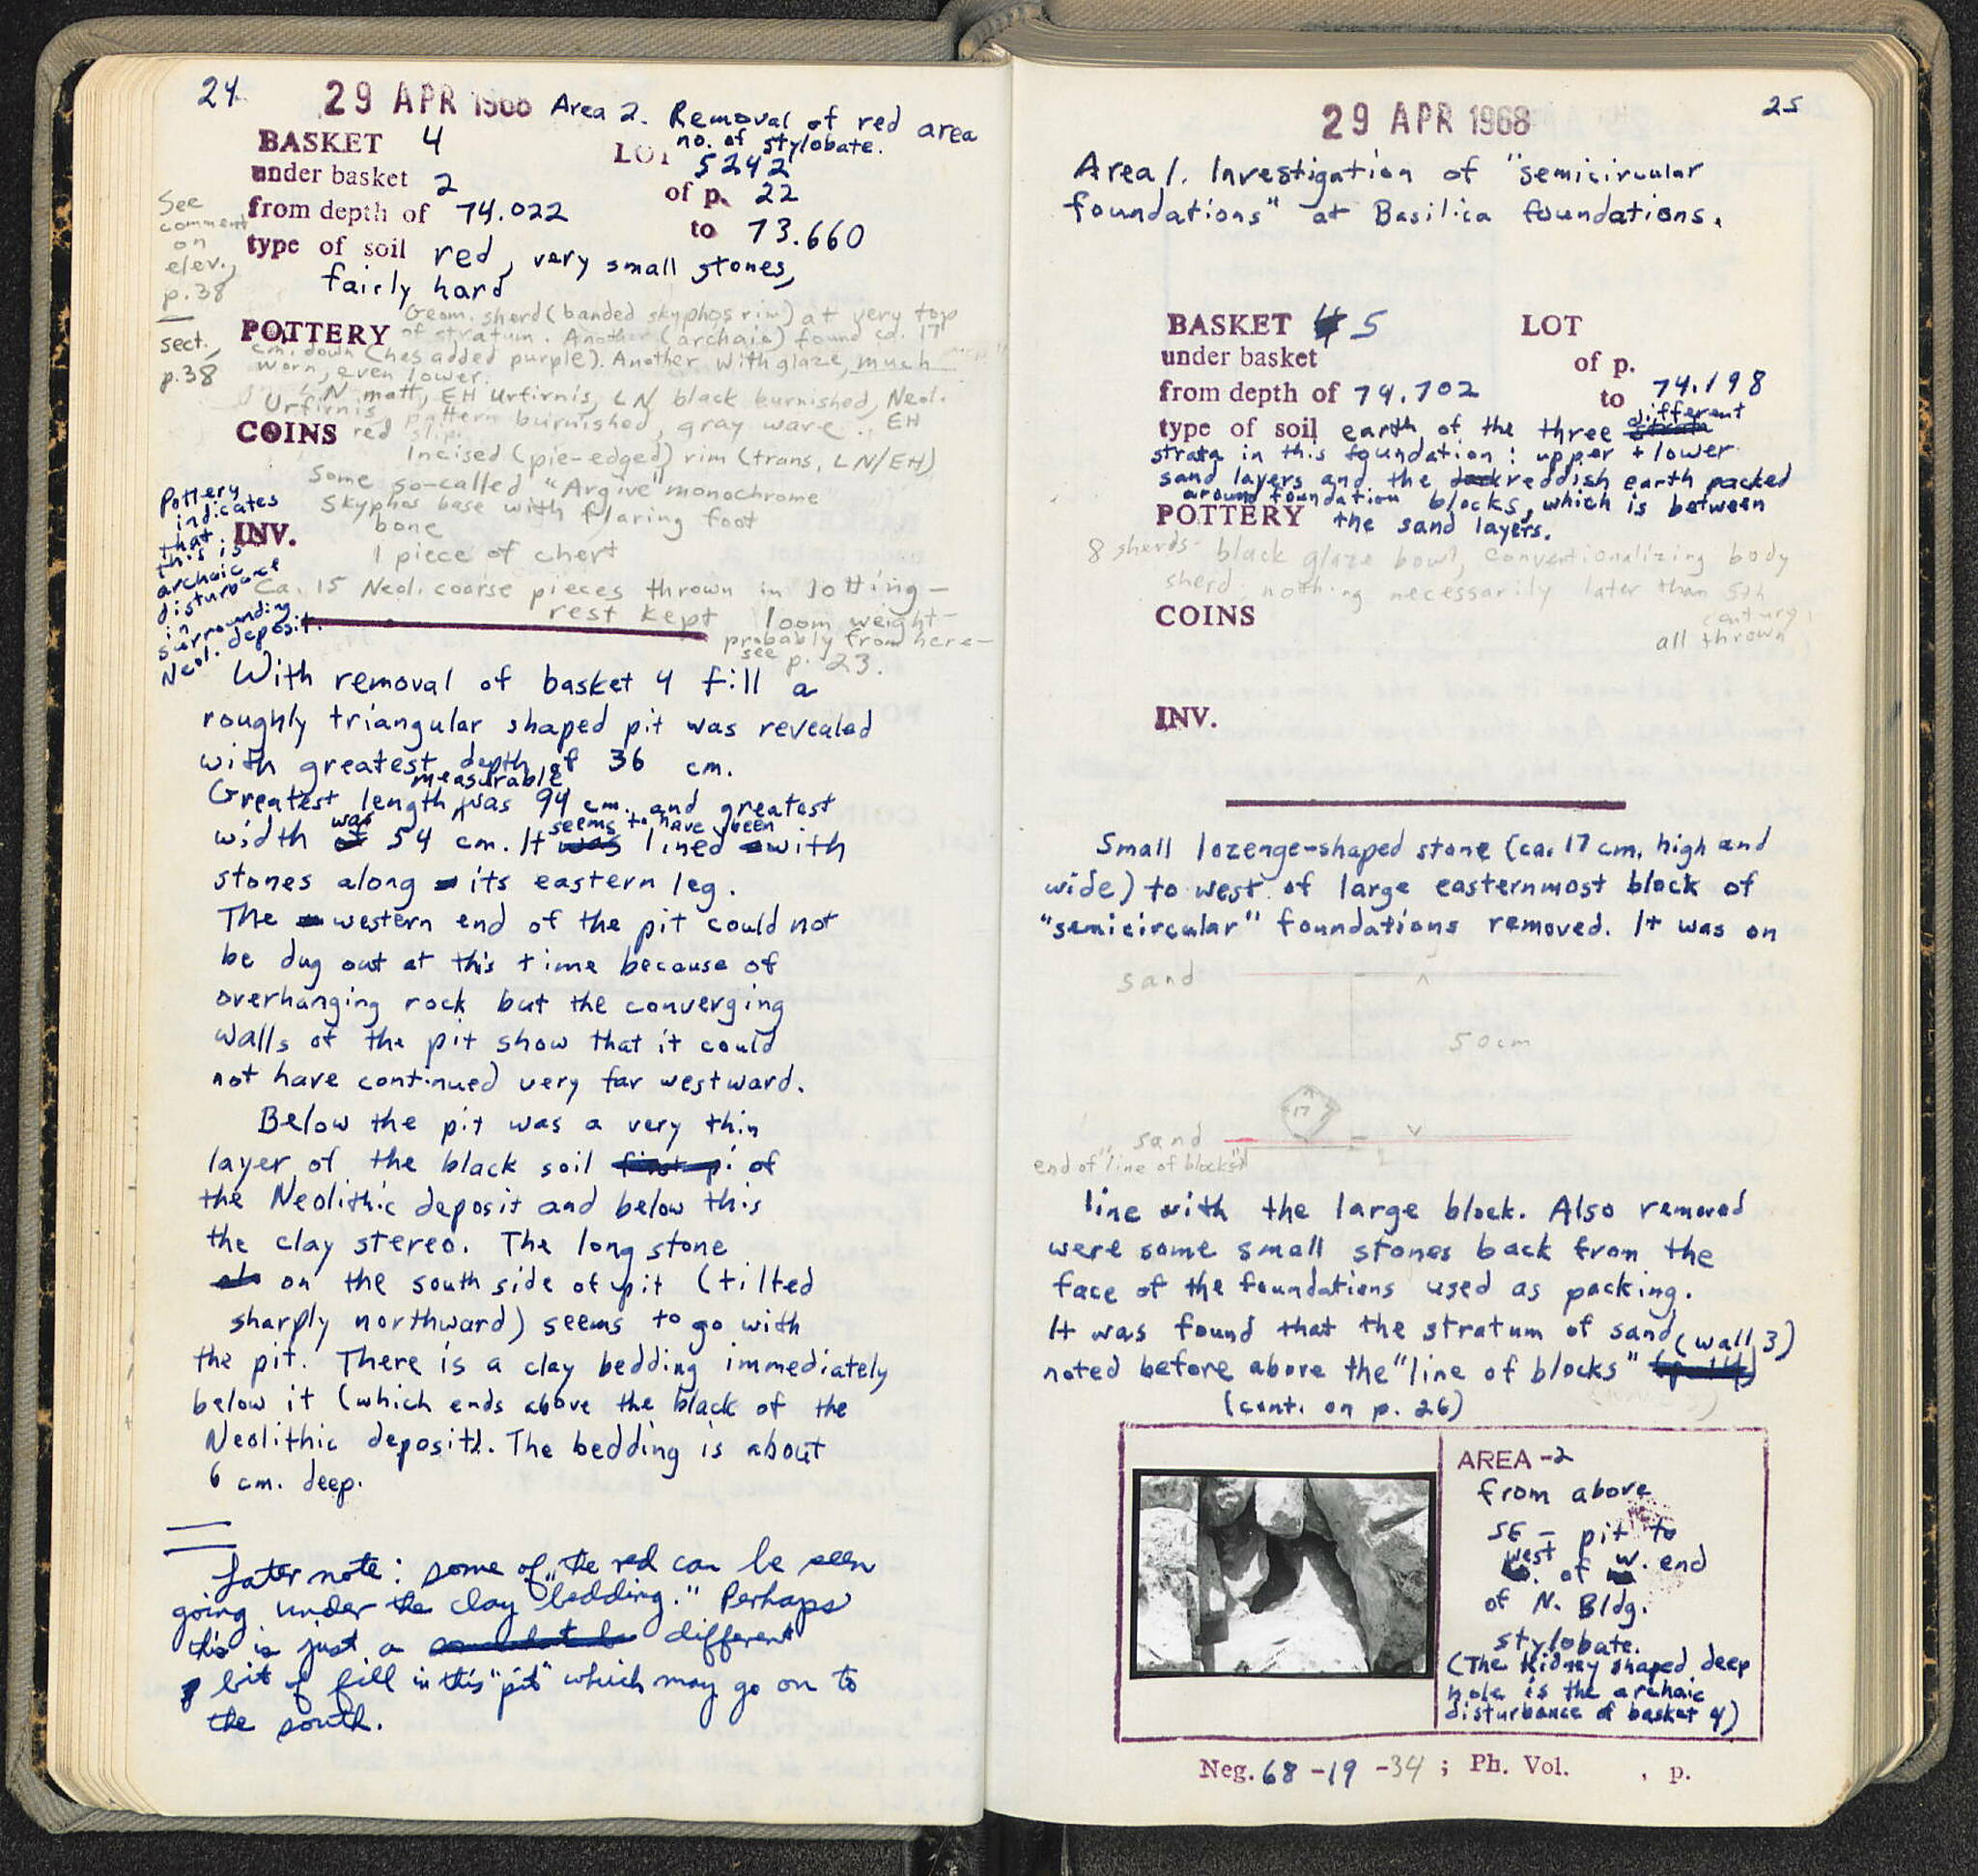 24
29 APR 1968 Area 2. Removal of red area
no. of stylobate.
BASKET 4 LOT 5242
under basket 2 of p. 22
from depth of 74.022 to 73.660
type of soil red, very small stones,
fairly hard
See
comment
on
elev.,
p.38
sect.,
p.38
POTTERY Geom. sherd (banded skyphos rim) at very top
of stratum. Another (archaic) found ca. 17
cm. down (has added purple). Another with glaze, much
worn, even lower.
LN matt, EH Urfirnis, LN black burnished, Neol.
Urfirnis, pattern burnished, gray ware. EH
COINS red slip.
Incised (pie-edged) rim (trans, LN/EH)
Some so-called "Argive" monochrome
Skyphos base with flaring foot
INV. bone
1 piece of chert
Ca. 15 Neol. coarse pieces thrown in lotting -
rest kept loom weight -
probably from here -
see p. 23.
Pottery
indicates
that
this is
archaic
disturbance
in
surrounding
Neol. deposit.
With removal of basket 4 fill a
roughly triangular shaped pit was revealed
with greatest depth of 36 cm.
Greatest measurable length was 94 cm. and greatest
width was 54 cm. It seems to have been lined with
stones along its eastern leg.
The western end of the pit could not
be dug out at this time because of
overhanging rock but the converging
walls of the pit show that it could
not have continued very far westward.
Below the pit was a very thin
layer of the black soil of
the Neolithic deposit and below this
the clay stereo. The long stone
on the south side of pit (tilted
sharply northward) seems to go with
the pit. There is a clay bedding immediately
below it (which ends above the black of the
Neolithic deposit). The bedding is about
6 cm. deep.
Later note: some of the red can be seen
going under the clay "bedding." Perhaps
this is just a different
bit of fill in this "pit" which may go on to
the south.
25
29 APR 1968
Area 1. Investigation of "semicircular
foundations" at Basilica foundations.
BASKET 5 LOT
under basket of p.
from depth of 74.702 to 74.198
type of soil earth of the three different
strata in this foundation: upper + lower
sand layers and the reddish earth packed
around foundation blocks, which is between
POTTERY the sand layers.
8 sherds - black glaze bowl, conventionalizing body
sherd; nothing necessarily later than 5th
century;
COINS all thrown
INV.
Small lozenge-shaped stone (ca. 17 cm. high and
wide) to west of large easternmost block of
"semicircular" foundations removed. It was on
sand
50cm
17
sand
end of "line of blocks"
line with the large block. Also removed
were some small stones back from the
face of the foundations used as packing.
It was found that the stratum of sand
noted before above the "line of blocks" (wall 3)
(cont. on p. 26)
AREA -2
from above
SE - pit to
west of w. end
of N. Bldg.
stylobate.
(The kidney shaped deep
hole is the archaic
disturbance of basket 4)
Neg. 68 -19 -34 ; Ph. Vol. , p.